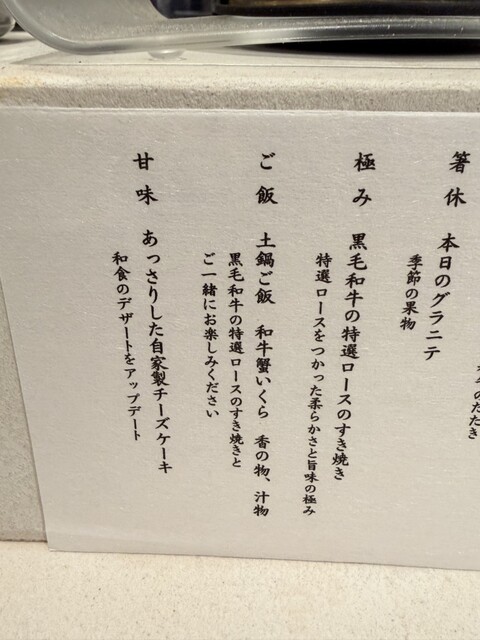 のたたき
箸休 本日のグラニテ
季節の果物
極み 黒毛和牛の特選ロースのすき焼き
特選ロースをつかった柔らかさと旨味の極み
ご飯 土鍋ご飯 和牛蟹いくら 香の物、汁物
黒毛和牛の特選ロースのすき焼きと
ご一緒にお楽しみください
甘味 あっさりした自家製チーズケーキ
和食のデザートをアップデート